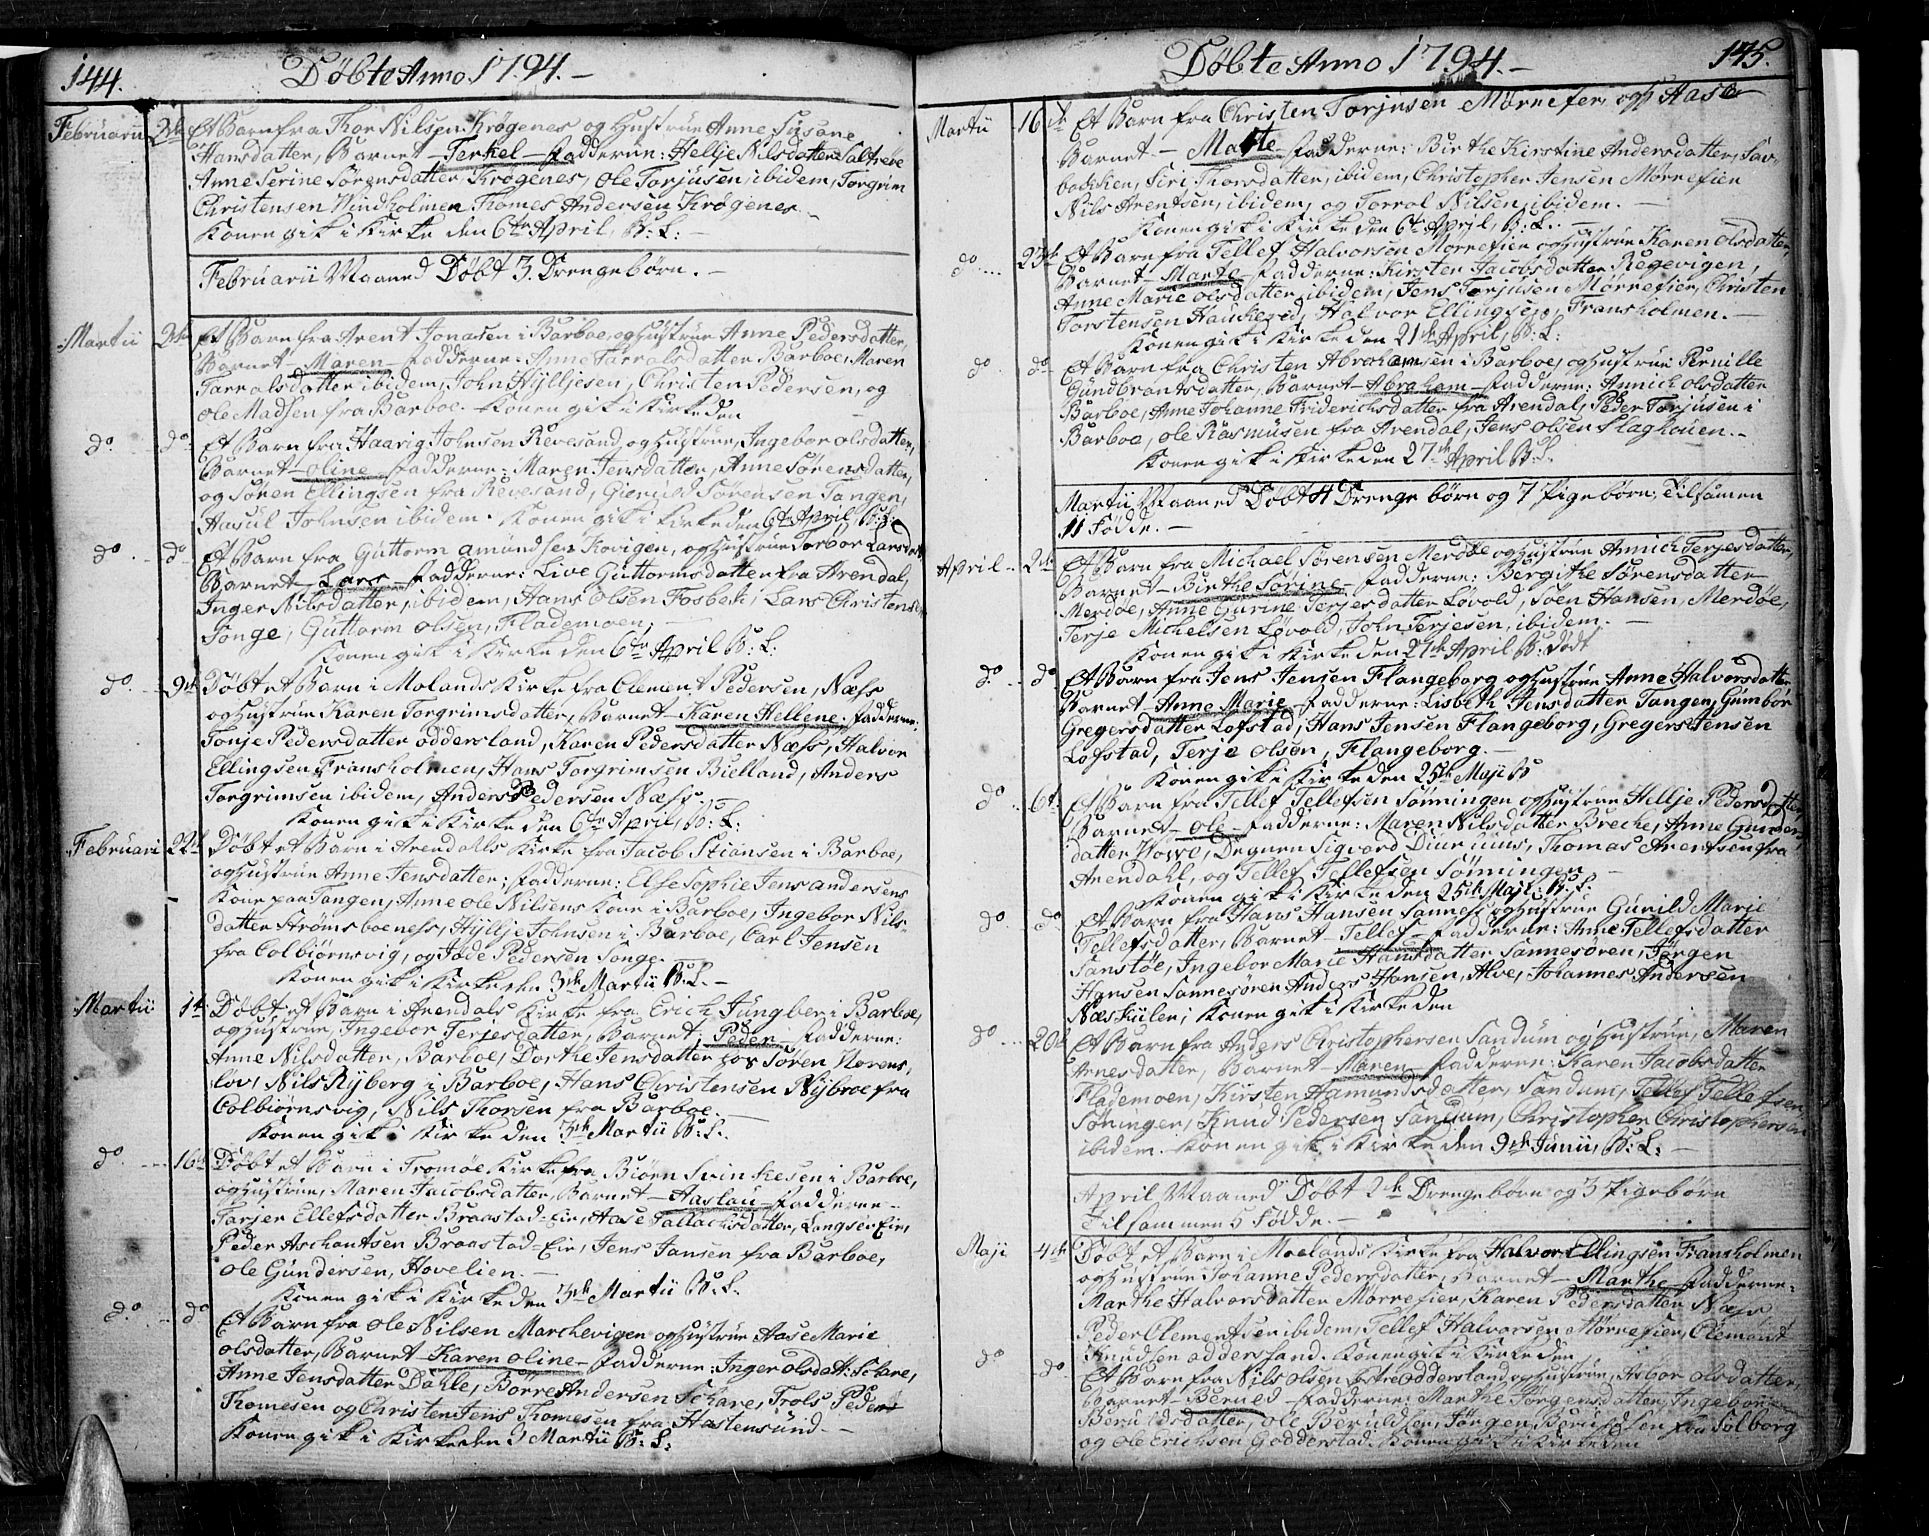 144. Døbte Anno 1794.-
Februarii 2de Et Barn fra Thor Nilsen Krøgenes og Hustrue Anne Susane
Hansdatter, Barnet - Terkel - Fadderne: Hellje Nilsdatter
Anne Serine Sørensdatter Krøgenes, Ole Torjusen, ibidem, Torgrim
Christensen Windholmen Thomes Andersen Krøgenes. -
Konen gik i Kirke den 6te April, B: L: -
Februarii Maaned Døbt 3. Drengebørn. -
Martii 2de Et Barn fra Arent Jonasen i Barboe, og Hustrue Anne Pedersdatter,
Barnet - Maren - Fadderne: Anne Tarralsdatter Barboe, Maren
Tarralsdatter ibidem, John Hylljesen, Christen Pedersen, og
Ole Madsen fra Barboe. Konen gik i Kirke den
do. do Et Barn fra Haarig Johnsen Revesand, og Hustrue, Ingebor Olsdatter,
Barnet - Oline - Fadderne: Maren Jensdatter, Anne Sørensdatter,
og Søren Ellingsen fra Revesand, Gieruld Sørensen Tangen,
Aasul Johnsen ibidem. Konen gik i Kirke den 6te April, B: L:
do. do Et Barn fra Guttorm Amundsen Kovigen, og Hustrue Torbor Larsdatt
Barnet - Lars - Fadderne: Live Guttormsdatter fra Arendal,
Inger Nilsdatter, ibidem, Hans Olsen Fosbek, Lars Christensen
Songe, Guttorm Olsen, Flademoen, -
Konen gik i Kirke den 6te April B: L:
do. 9de Døbt et Barn i Molands Kirke fra Clement Pedersen, Næss
og Hustrue Karen Torgrimsdatter, Barnet - Karen Hellene. Fadderne:
Tonje Pedersdatter Oddersland, Karen Pedersdatter Næss, Halvor
Ellingsen Fransholmen, Hans Torgrimsen Bielland, Anders
Torgrimsen ibidem, Anders Pedersen Næss.
Konen gik i Kirke den 6te April, B: L:
Februarii 22de Døbt et Barn i Arendalls Kirke fra Jacob Stiansen i Barboe,
og Hustrue Anne Jensdatter; Fadderne: Else Sophie Jens Andersens
Kone paa Tangen, Anne Ole Nilsens Kone i Barboe, Ingebor Nils-
datter Strømsboeness, Hyllje Johnsen i Barboe, Carl Jensen
fra Colbiørnsvig, og Jøde Pedersen Songe.
Konen gik i Kirke den 3de Martii B: L. -
Martii 1te Døbt et Barn i Arendals Kirke fra Erich Jungber i Barboe,
og Hustrue, Ingebor Terjesdatter, Barnet, Peder - Fadderne:
Anne Nilsdatter, Barboe, Dorthe Jensdatter Søren Norens-
lov, Nils Ryberg i Barboe, Hans Christensen Nybroe fra
Colbiørnsvig, Nils Thorsen fra Barboe. -
Konen gik i Kirke den 3de Martii B: L: -
do. 16de Døbt et Barn i Tromøe Kirke fra Biørn Svinkesen i Barboe,
og Hustrue, Maren Jacobsdatter, Barnet - Aaslau - Fadderne -
Tarjer Ellefsdatter Braastad-Eie, Aase Tallachsdatter, Langsee Eie,
Peder Aschantsen Braastad-Eie, Jens Jansen fra Barboe,
Ole Gundersen, Hovelien. -
Konen gik i Kirke den 3de Martii B: L.
do. do Et Barn fra Ole Nilsen Marchevigen og Hustrue Aase Marie
Olsdatter, Barnet - Karen Oline - Fadderne: Inger Olsdatt: Schare,
Anne Jensdatter Dahle, Børre Andersen Schare, Trols Peder
Thomesen og Christen Jens Thomesen fra Hastensund. -
Konen gik i Kirke den 3 Martii B: L:
Døbte Anno 1794.- 145.
Martii 16de Et Barn fra Christen Torjusen Mørrefier, og Aase
Barnet - Marte - Fadderne: Birthe Kirstine Andersdatter, Sav-
bakken, Siri Thorsdatter, ibidem, Christopher Jensen Mørrefier
Nils Arentsen, ibidem, og Torrol Nilsen, ibidem. -
Konen gik i Kirke den 6te April, B: L. -
do.... 23de Et Barn fra Tellef Halvorsen Mørrefier og Hustrue Karen Olsdatter,
Barnet - Marte - Fadderne: Kirsten Jacobsdatter, Regevigen,
Anne Marie Olsdatter ibidem, Jens Torjusen Mørrefier, Christen
Torstensen Haukered, Halvor Ellingsen, Fransholmen. -
Konen gik i Kirke den 21de April, B: L:
do do Et Barn fra Christen Abrahamsen i Barboe, og Hustrue Pernille
Gundbrantsdatter, Barnet - Abraham - Fadderne: Annich Olsdatter
Barboe, Anne Johanne Friderichsdatter fra Arendal, Peder Torjusen i
Barboe, Ole Rasmusen fra Arendal, Jens Olsen Slaghouen. -
Konen gik i Kirke den 27de April B: L.
Martii Maaned Døbt 4 Drenge børn og 7 Pigebørn, Tilsamen
11 Fødde. -
April 2de Et Barn fra Michael Sørensen Merdøe og Hustrue Annich Terjesdatter,
Barnet - Birthe Sorine - Fadderne: Bergithe Sørensdatter -
Merdøe, Anne Gurine Terjesdatter Løvold, Soen Hansen, Merdøe,
Terje Michelsen Løvold, John Terjesen, ibidem. -
Konen gik i Kirke den 21de April B: Dødt
do. do Et Barn fra Jens Jensen Flangeborg og Hustrue Anne Halvorsdatter
Barnet - Anne Marie - Fadderne: Lisbeth Jensdatter Tangen, Gumbør
Gregersdatter Lofstad, Hans Jensen Flangeborg, Gregers Jensen
Lofstad, Terje Olsen, Flangeborg. -
Konen gik i Kirke den 25de Maji B
do 6te Et Barn fra Tellef Tellefsen Sønningen og Hustrue Hellje Pedersdatter,
Barnet - Ole - Fadderne: Maren Nilsdatter Breche, Anne Gunder-
datter Howe, Degnen Sigvard Diuriuus, Thomas Arentsen fra
Arendahl, og Tellef Tellefsen Sønningen -
Konen gik i Kirke den 25de Maji. B: L.
do do Et Barn fra Hans Hansen Sannes, og Hustrue Gunild Marie
Tellefsdatter, Barnet - Tellef - Fadderne: Anne Tellefsdatter
Sanstøe, Ingebor Marie Hansdatter Sannesøren, Jørgen
Hansen Sannesøren Anders Hansen, Alve, Johannes Andersen
Næskilen, Konen gik i Kirke den
do... 20de Et Barn fra Anders Christophersen Sandum og Hustrue, Maren
Arnesdatter, Barnet - Maren - Fadderne: Karen Jacobsdatter
Flademoen, Kirsten Hamundsdatter, Sandum, Tellef Tellefsen
Søningen, Knud Pedersen Sandum, Christopher Christophersen
ibidem. Konen gik i Kirke den 9de Junii, B: L: -
April Maaned Døbt 2de Drengebørn og 3 Pigebørn
Tilsammen 5 Fødde. -
Maji 4de Døbt et Barn i Moelands Kirke fra Halvor Ellingsen Fransholmen
og Hustrue Johanne Pedersdatter, Barnet - Marthe - Fadderne -
Marthe Halvorsdatter Mørrefier, Karen Pedersdatter, Næss
Peder Clementsen ibidem, Tellef Halvorsen Mørrefier, Clement
Knudsen Oddersland. Konen gik i Kirke den
do do Et Barn fra Nils Olsen Østre Oddersland, og Hustrue, Asbor Olsdatter,
Barnet - Beruld - Fadderne: Marthe Jørgensdatter, Ingebor
Beruldsdatter, Ole Beruldsen, Jørgen Beruldsen fra Solborg
og Ole Erichsen Godderstad. Konen gik i Kirke den